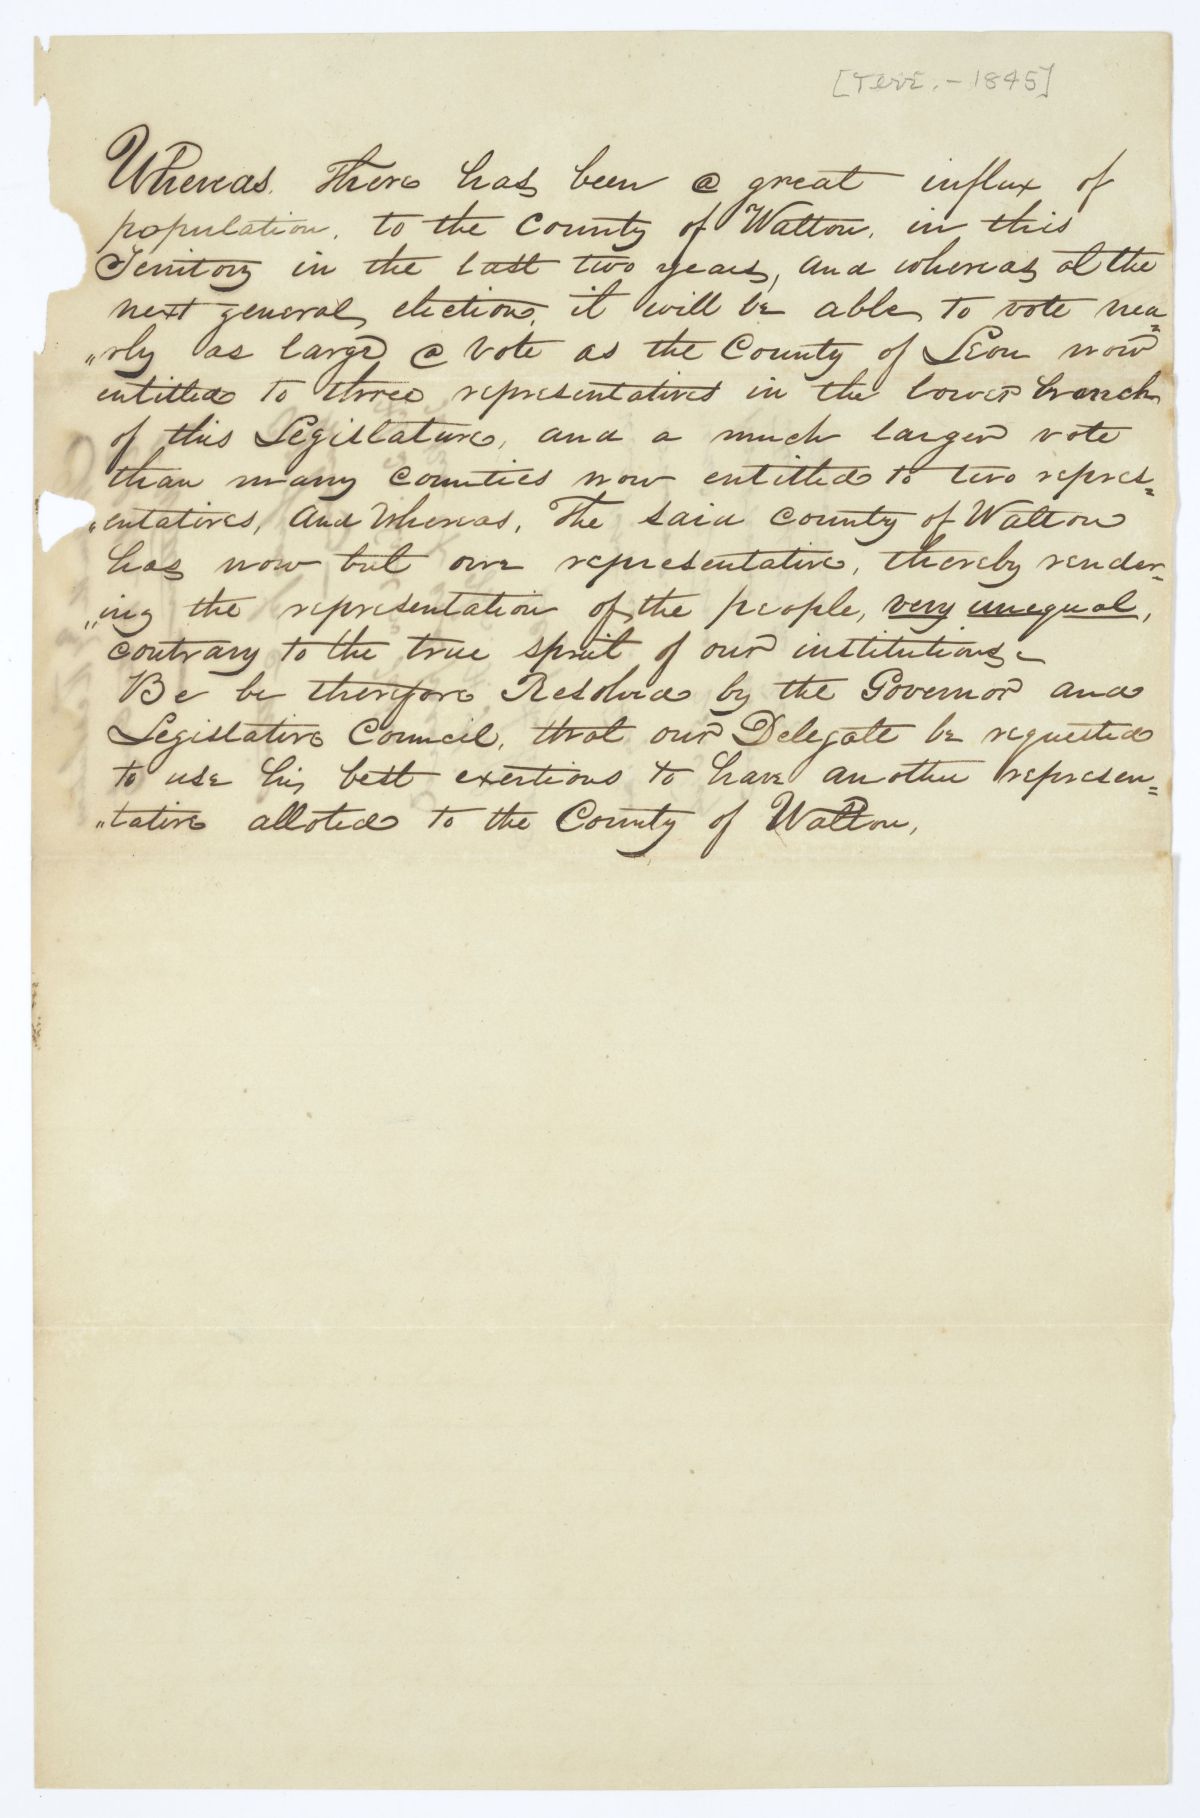 [Terr. - 1845]
Whereas. There has been a great influx of
population, to the County of Walton, in this
Territory in the last two years, and whereas at the
next general election, it will be able to vote nea=
"rly as large a vote as the County of Leon now
entitled to three representatives in the lower branch
of this Legislature, and a much larger vote
than many counties now entitled to two repres=
"entatives, And Whereas, The said county of Walton
has now but one representative, thereby render=
"ing the representation of the people, very unequal,
contrary to the true spirit of our institutions
Be be therefore Resolved by the Governor and
Legislative Council, that our Delegate be requested
to use his best exertions to have another represen=
"tative alloted to the County of Walton,